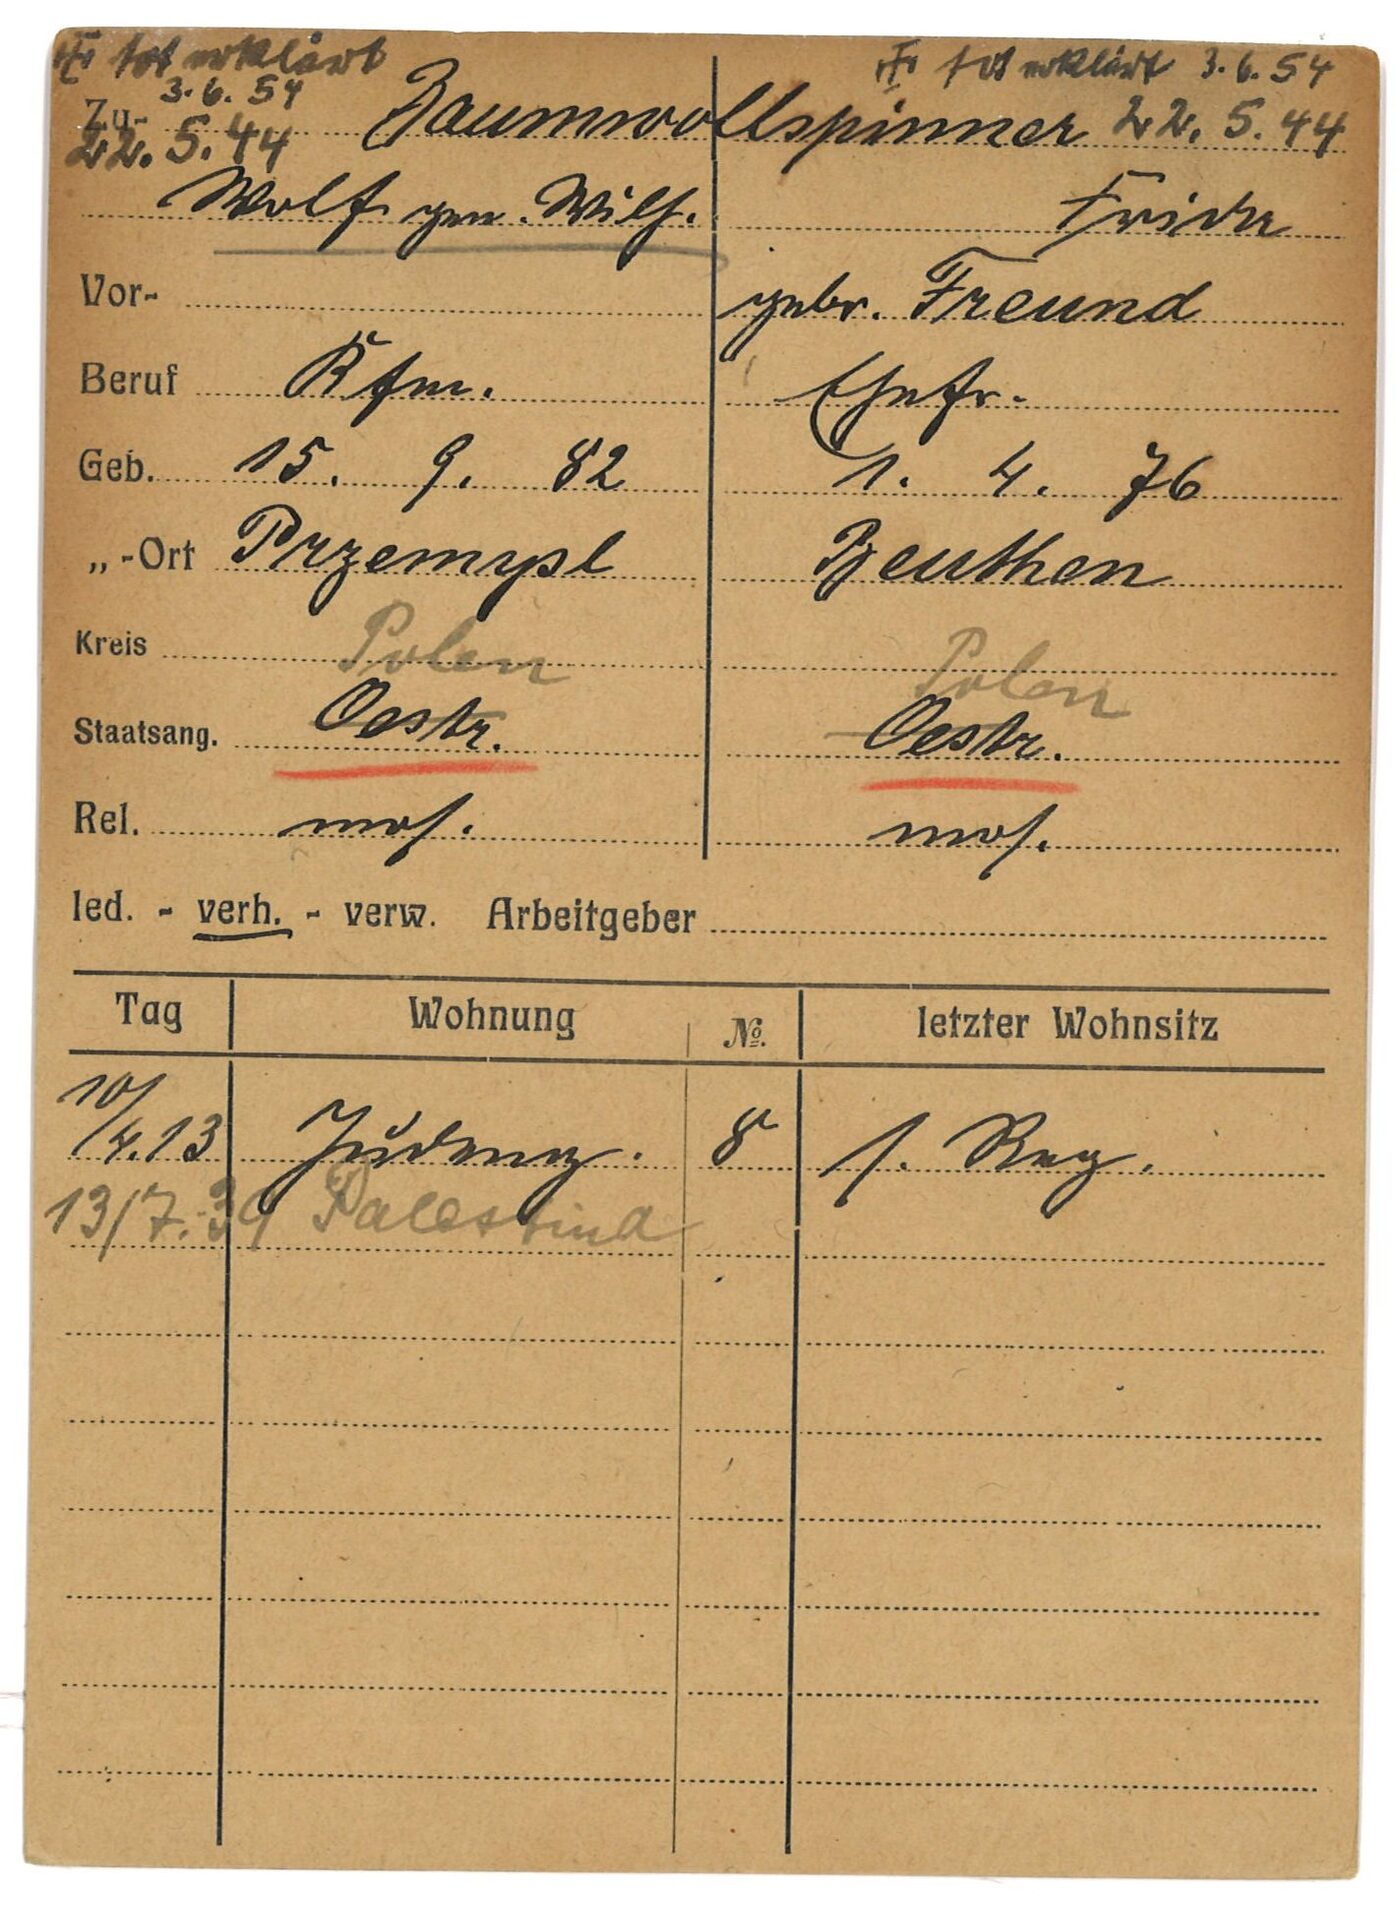 † tot erklärt † tot erklärt 3.6.54
3.6.54
Zu- Baumwollspinner 22.5.44
22.5.44
Wolf gen. Wilh. Frieda
Vor- gebr. Freund
Beruf Kfm. Ehefr.
Geb. 15. 9. 82 1. 4. 76
„-Ort Przemysl Beuthen
Kreis Polen Polen
Staatsang. Oestr. Oestr.
Rel. mos. mos.
led. - verh. - verw. Arbeitgeber
Tag Wohnung No. letzter Wohnsitz
10/4.13 Judeng. 8 s. Reg.
13/7.39 Palestina